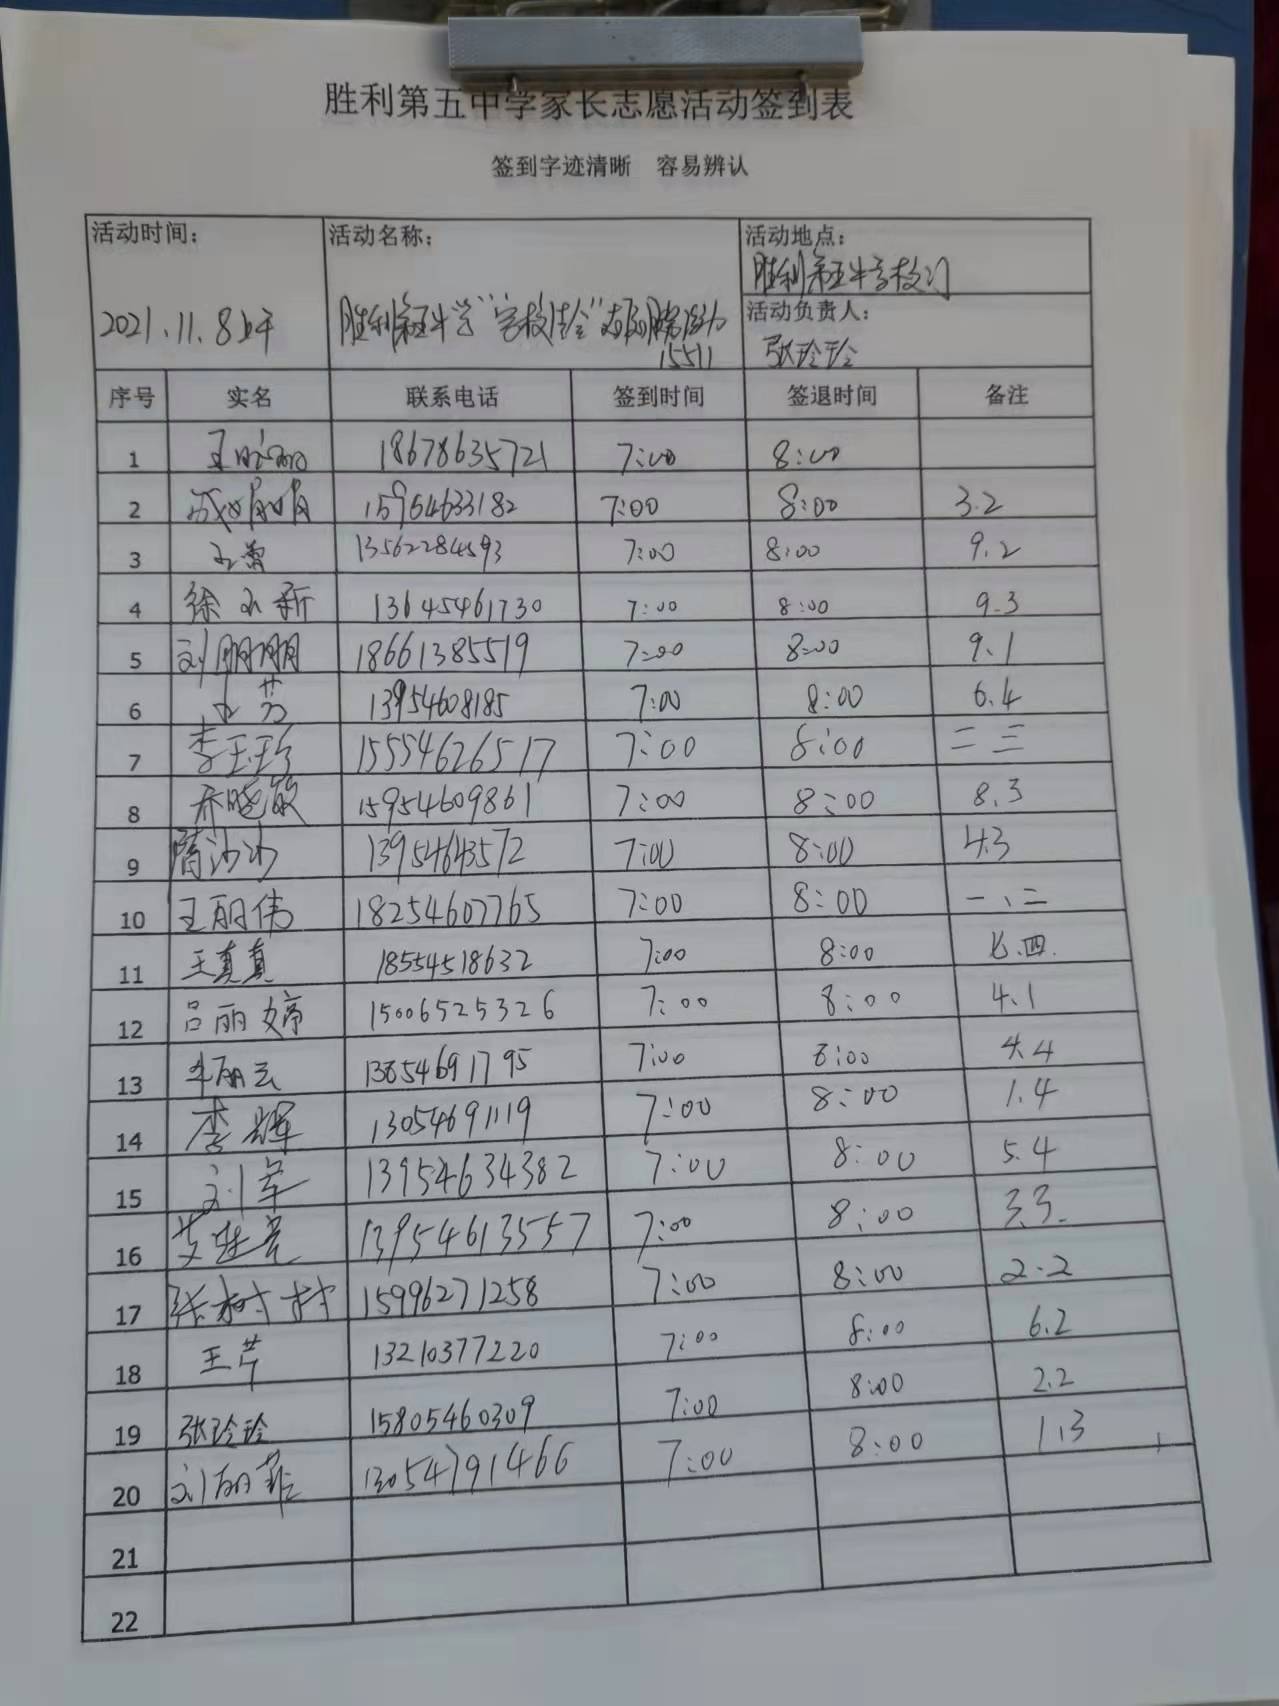 胜利第五中学家长志愿活动签到表
签到字迹清晰 容易辨认
活动时间：
2021.11.8上午
活动名称：
胜利第五中学"学校结合"志愿服务活动
15511
活动地点：
胜利第五中学校门
活动负责人：
张玲玲
序号 实名 联系电话 签到时间 签退时间 备注
1 18678635721 7:00 8:00
2 15964633182 7:00 8:00 3.2
3 王蕾 13562284593 7:00 8:00 9.2
4 徐永新 13645461730 7:00 8:00 9.3
5 刘朋朋 18661385519 7:00 8:00 9.1
6 13954608185 7:00 8:00 6.4
7 李玉珍 15554626517 7:00 8:00 二 三
8 乔晓敏 15954609861 7:00 8:00 8.3
9 隋沙沙 13954643572 7:00 8:00 4.3
10 王丽伟 18254607765 7:00 8:00 一、二
11 王真真 18554518632 7:00 8:00 七.四.
12 吕丽婷 15006525326 7:00 8:00 4.1
13 李丽云 13854691795 7:00 8:00 4.4
14 李辉 13054691119 7:00 8:00 1.4
15 刘军 13954634382 7:00 8:00 5.4
16 艾胜亮 13954613557 7:00 8:00 3.3
17 张树村 15996271258 7:00 8:00 2.2
18 王芹 13210377220 7:00 8:00 6.2
19 张玲玲 15805460309 7:00 8:00 2.2
20 刘丽菲 13054791466 7:00 8:00 1.3
21
22